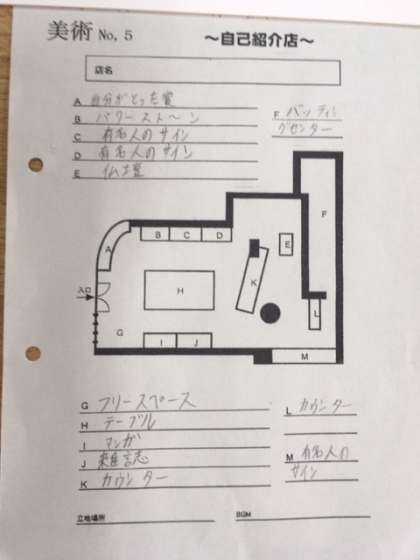 美術 No, 5
～自己紹介店～
店名
A 自分がとった賞
B パワーストーン
C 有名人のサイン
D 有名人のサイン
E 仏壇
F バッティン
グセンター
F
A
B C D
E
入口
H
K
G
L
I J
M
G フリースペース
H テーブル
I マンガ
J 雑誌
K カウンター
L カウンター
M 有名人の
サイン
立地場所
BGM